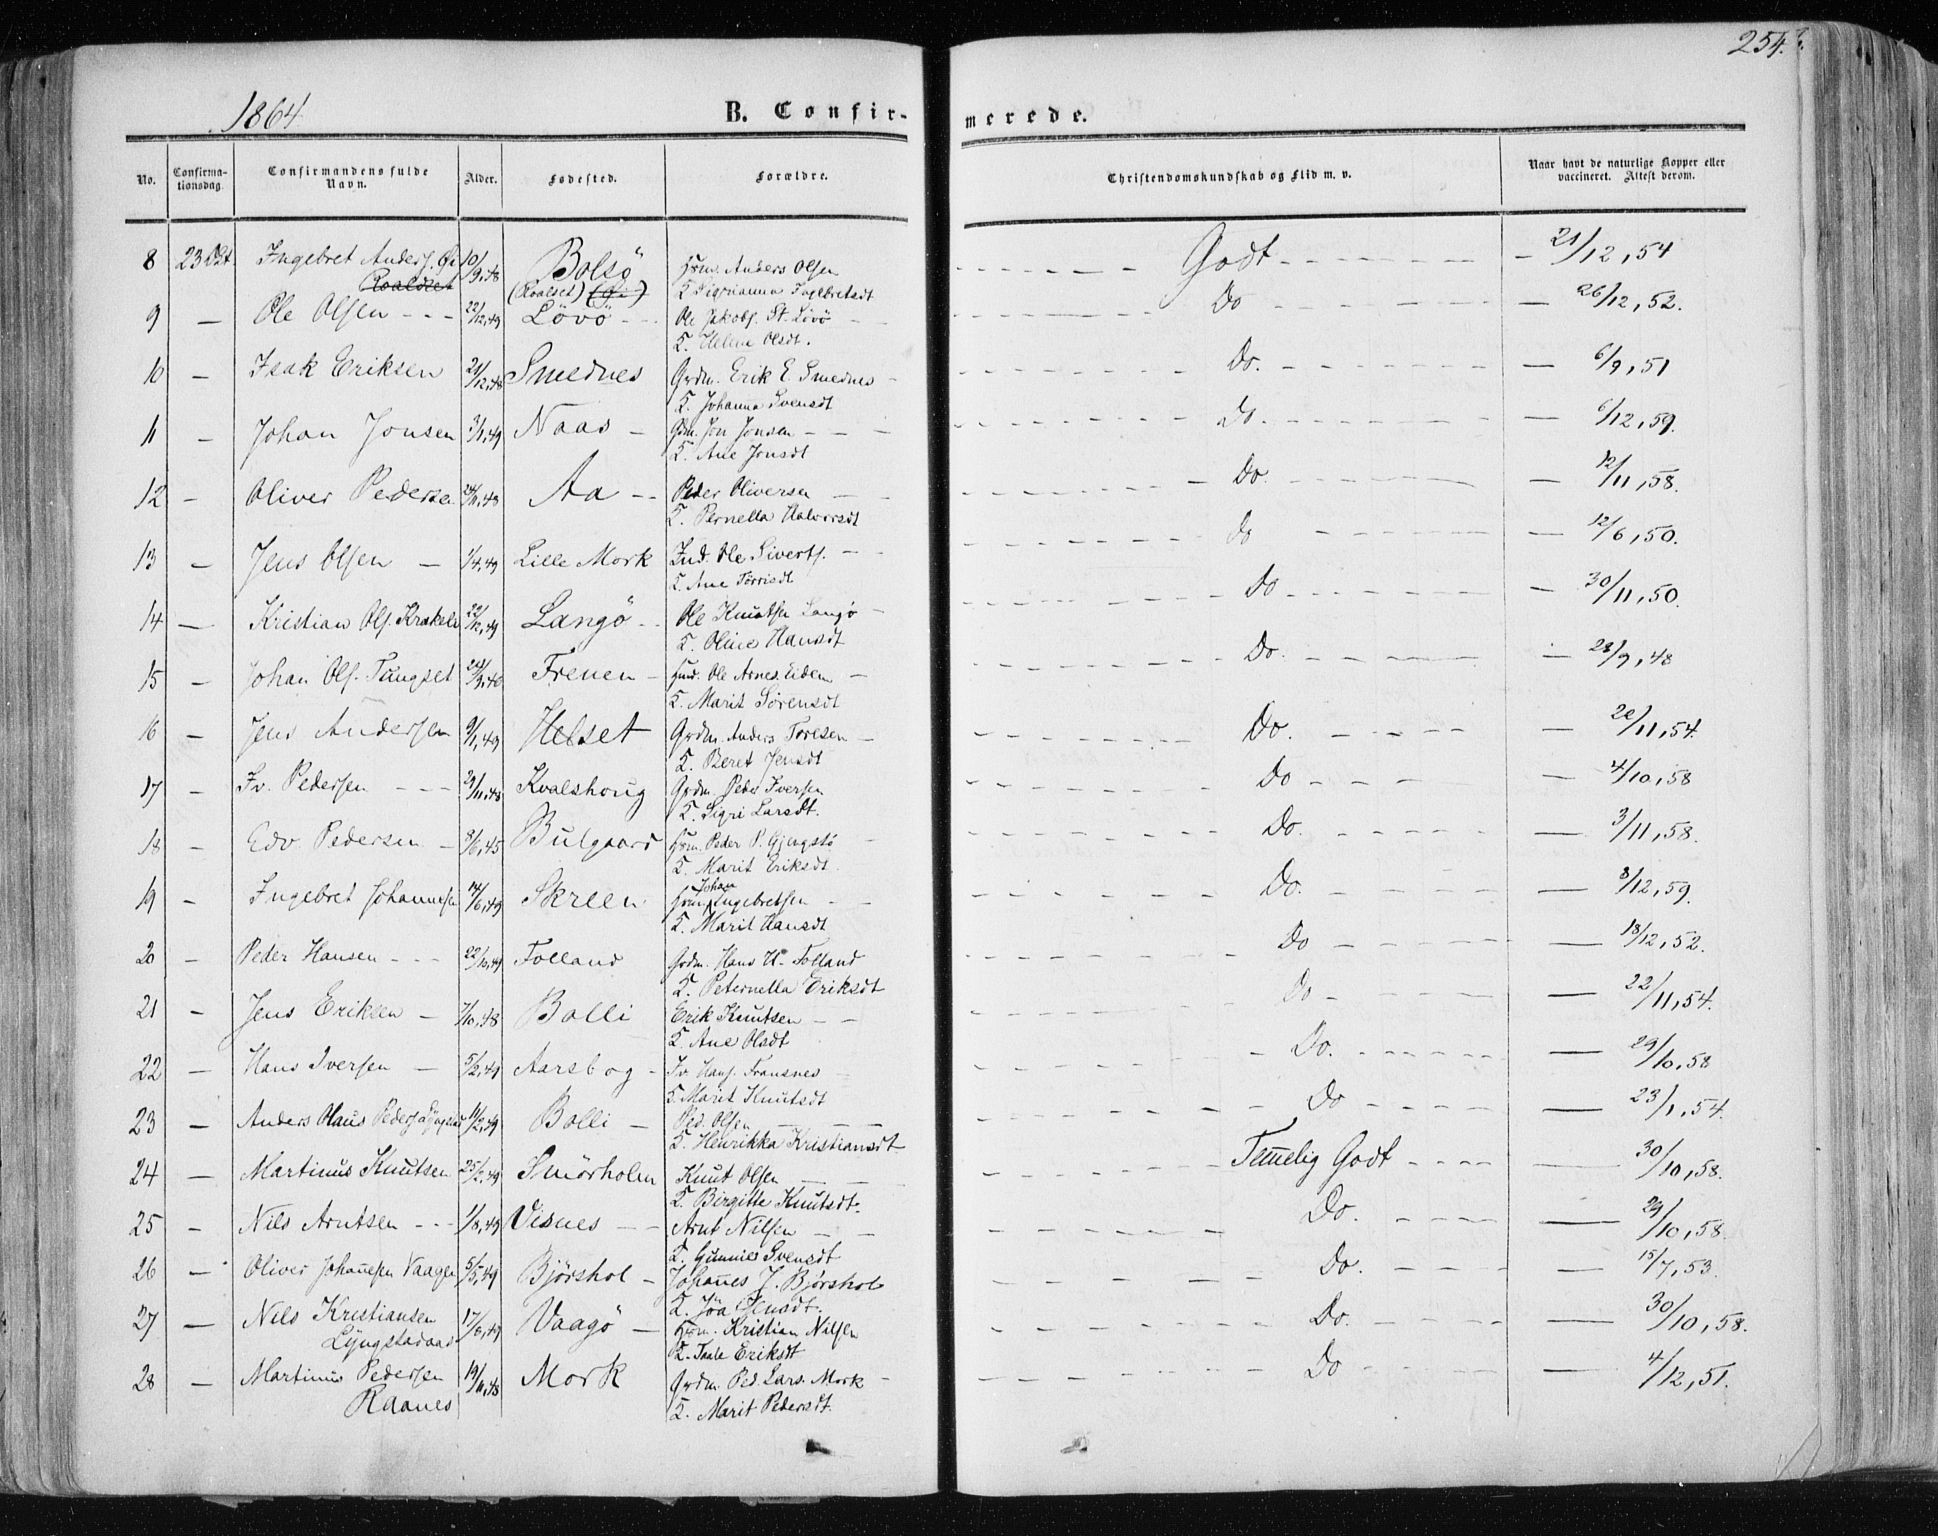 254.
1864
B. Confir- merede.
No. Confirma-tionsdag. Confirmandens fulde Navn. Alder. Fødested. Forældre. Christendomskundskab og Flid m. v. Naar havt de naturlige Kopper eller vaccineret. Attest derom.
8 23 Oct. Ingebret Anders. 10/9,48 Bolsö Hsm. Anders Olsen Godt 21/12,54
Roaldset (Roalset) K. Ingebretsdt
9 — Ole Olsen 22/12,49 Lövö Ole Jakobs. St. Lövö Do 26/12,52.
K. Helene Olsdt.
10 — Isak Eriksen 21/12,48 Smednes Grdm. Erik E. Smednes Do. — 6/9,51
K. Johanna Svensdt
11 — Johan Jonsen 3/1,49 Naas Gdm. Jon Jonsen Do. — 6/12,59.
K. Ane Jonsdt
12 — Oliver Pedersen 24/11,48 Aa Peder Oliversen Do. — 12/11,58.
K. Pernella Halvorsdt
13 — Jens Olsen 1/4,49 Lille Mork Ind. Ole Siverts. Do — 12/6,50.
K. Ane Torrisdt
14 — Kristian Ols. 22/12,49 Langö Ole Knutsen Langö Do — 30/11,50.
K. Oline Hansdt
15 — Johan Ols. Tungset Frenen Ole Arnes. Eidem Do. — 28/9,48
K. Marit Sörensdt
16 — Jens Andersen 9/1,49 Helset Grdm. Anders Toresen Do. — 20/11,54.
K. Beret Jensdt
17 — Iv. Pedersen 29/11,48 Kvalshoug Grdm. Peder Iversen Do — 4/10,58
K. Sigri Larsdt.
18 — Edv. Pedersen 8/6,45 Bulgaard Hsm. Peder P. Gjengstö Do. — 3/11,58.
K. Marit Eriksdt.
19 — Ingebret Johannesen 14/6,49 Skreen Hsm. Johan Ingebretsen Do. — 8/12,59.
K. Marit Hansdt
20 — Peder Hansen 22/10,49 Folland Grdm. Hans H. Folland Do — 18/12,52.
K. Peternella Eriksdt
21 — Jens Eriksen 7/10,48 Bolli Erik Knutsen Do — 22/11,54.
K. Ane Olsdt
22 — Hans Iversen 5/2,49 Aarsbog Iv. Hans. Fransnes Do. — 29/10,58
K. Marit Knutsdt
23 — Anders Olaus Peders. 11/2,49 Bolli Ped. Olsen Do — 23/1,54.
K. Henrikka Kristiansdt
24 — Martinus Knutsen 25/2,49 Smörholm Knut Olsen Temelig Godt — 30/10,58.
K. Birgitte Knutsdt.
25 — Nils Arntsen 1/8,49 Visnes Arnt Nilsen Do. — 29/10,58.
K. Gunnild Svensdt
26 — Oliver Johanesen Vaagen 5/5,49 Björshol Johanes J. Björshol Do. — 15/7,53.
K. Jensdt.
27 — Nils Kristiansen 17/6,49 Vaagö Hsm. Kristian Nilsen Do. — 30/10,58.
Lyngstadaas K. Eriksdt
28 — Martinus Pedersen 19/11,48 Mork Grdm. Ped. Lars. Mork Do — 4/12,51.
Raanes K. Marit Pedersdt.